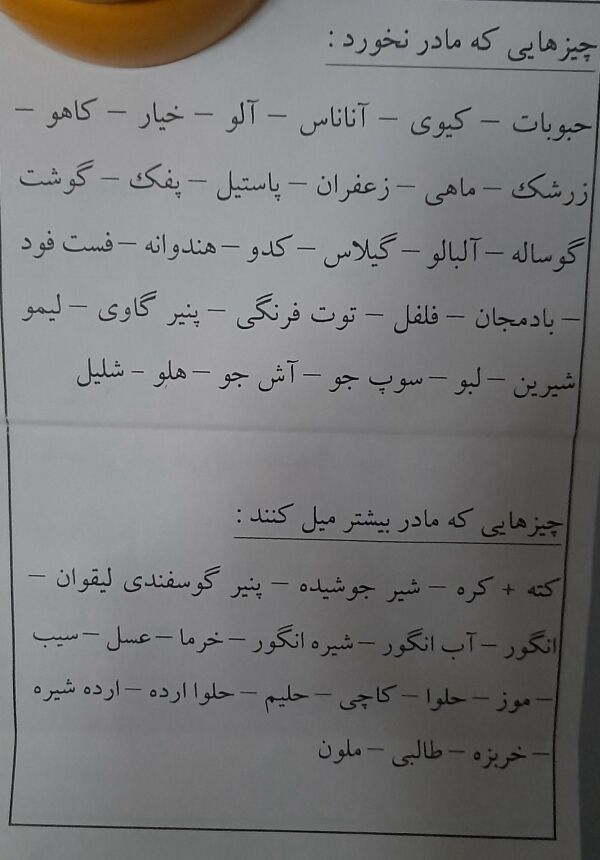 چیزهایی که مادر نخورد :
حبوبات – کیوی – آناناس – آلو – خیار – کاهو –
زرشک – ماهی – زعفران – پاستیل – پفک – گوشت
گوساله – آلبالو – گیلاس – کدو – هندوانه – فست فود
– بادمجان – فلفل – توت فرنگی – پنیر گاوی – لیمو
شیرین – لبو – سوپ جو – آش جو – هلو - شلیل
چیزهایی که مادر بیشتر میل کنند :
کته + کره – شیر جوشیده – پنیر گوسفندی لیقوان –
انگور – آب انگور – شیره انگور – خرما – عسل – سیب
– موز – حلوا – کاچی – حلیم – حلوا ارده – ارده شیره
– خربزه – طالبی – ملون